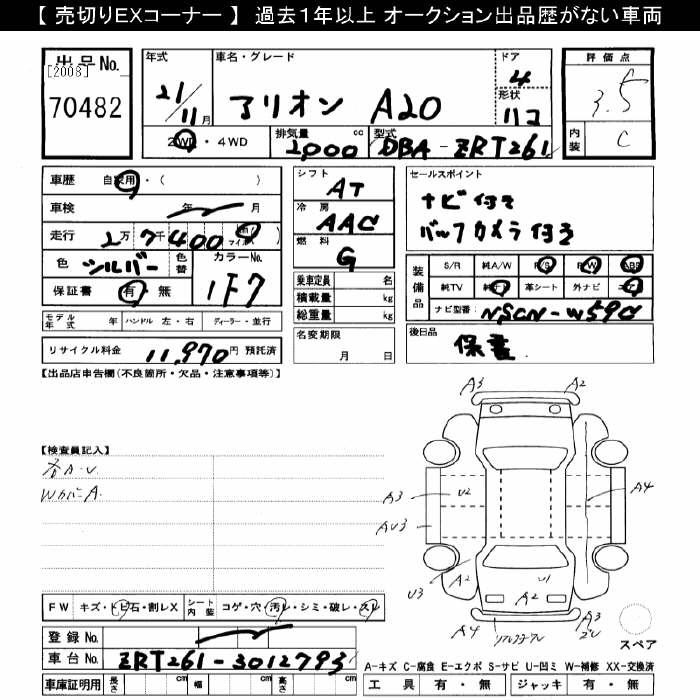 【 売切りEXコーナー 】 過去１年以上 オークション出品歴がない車両
出品No.
[2008]
70482
年式
21/11月
車名・グレード
アリオン A20
ドア
4
形状
評価点
3.5
内装
C
2WD・4WD
排気量 2000 cc
型式 DBA-ZRT261
車歴 自家用・( )
車検 年 月
走行 2万7千400 km マイル
色 シルバー 色替
カラーNo. 1F7
保証書 有・無
モデル年式 年 ハンドル 左・右 ディーラー・並行
リサイクル料金 11,970円 預託済
シフト AT
冷房 AAC
燃料 G
乗車定員 名
積載量 kg
総重量 kg
名変期限
月 日
セールスポイント
ナビ付き
バックカメラ付き
装備品
S/R 純A/W P/S P/W ABS
純TV 純ナビ 革シート 外ナビ エアB
ナビ型番 NSCN-W59C
後日品
保書
【出品店申告欄(不良箇所・欠品・注意事項等)】
【検査員記入】
各A・U
WカバーA.
A3 A2
A3 U2 A4
AU3
U3 A2 U1
A2
A4 A3
2U
スペア
FW キズ・トビ石・割レX シート内装 コゲ・穴・汚レ・シミ・破レ・スレ
登録No.
車台No. ZRT261-3012793
車庫証明用 長さ cm 幅 cm 高さ cm
A-キズ C-腐食 E-エクボ S-サビ U-凹ミ W-補修 XX-交換済
工具 有・無 ジャッキ 有・無